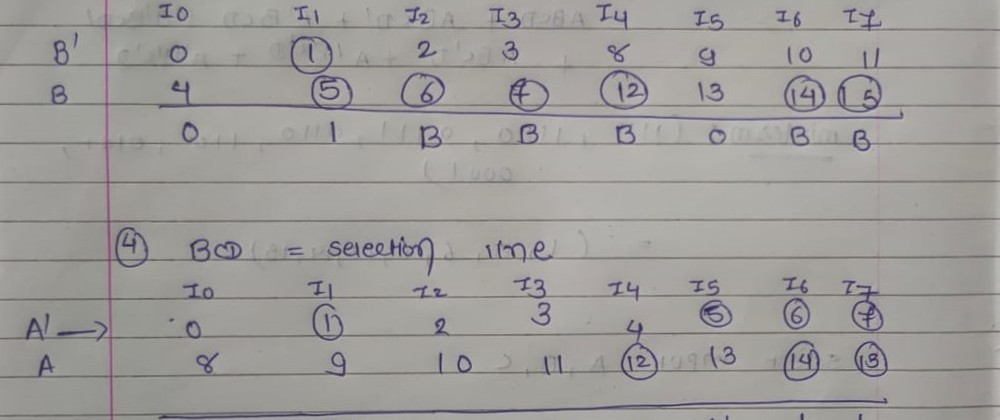 I0 I1 I2 I3 I4 I5 I6 I7
B' 0 1 2 3 8 9 10 11
B 4 5 6 7 12 13 14 15
0 1 B B B 0 B B
4 BCD = selection line
I0 I1 I2 I3 I4 I5 I6 I7
A' → 0 1 2 3 4 5 6 7
A 8 9 10 11 12 13 14 15